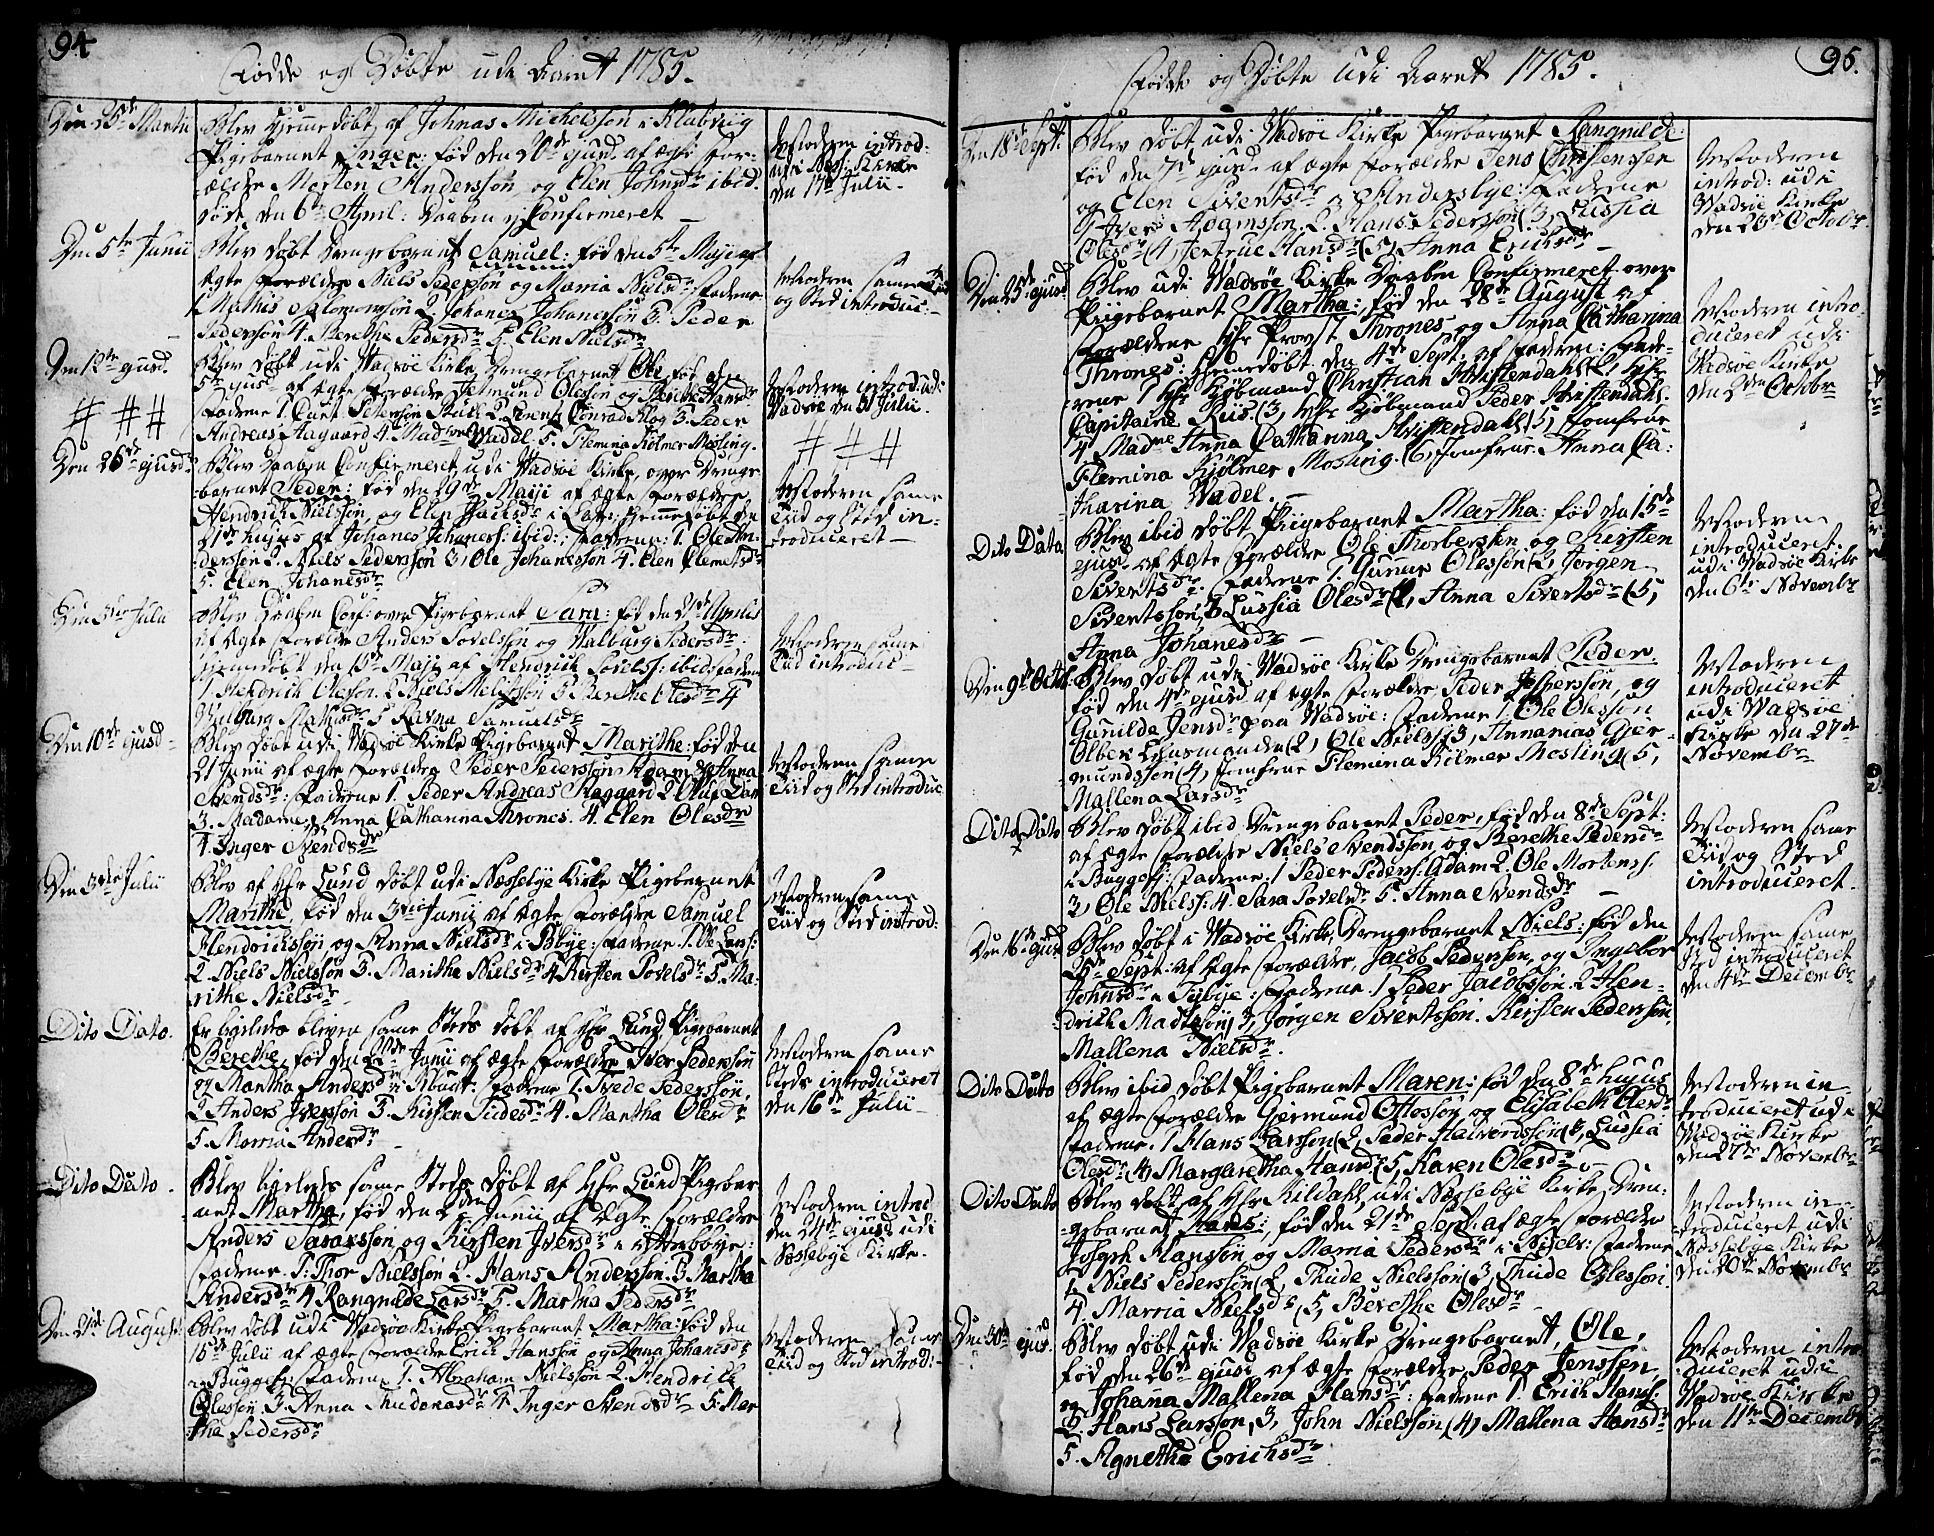 94
Fødde og Døbte udi Aaret 1785.
Den 25de Martii
Blev Hjemmedøbt af Johnas Michelssøn i Klabvig
Pigebarnet Inger: fød den 20de ejusd. af ægte For-
ældre Morten Anderssøn, og Elen Johnsdr ibid.
døde den 6te April: Daaben ej Confirmeret
Moderen introd:
udi Kirke
den 17de Julii.
Den 5te Junii
Blev døbt Drengebarnet Samuel: fød den 5te Maji af
Ægte Forældre Niels Pederssøn og Marria Nielsdr; Faddere
1 Mathis Salomonsøn 2 Johanes Johanessøn 3. Peder
Pederssøn 4. Berethe Pedersdr 5. Elen Nielsdr
Moderen same
og Sted introduc:
Den 12te ejusd.
Blev døbt udi Wadsøe Kirke Drengebarnet Ole fød den
5te ejusd. af ægte Forældre Jetmund Olessøn og Berithe Hansdr
Faddere 1. Curt Peterssøn 2. Conrad Klog 3. Peder
Andreas Aagaard 4. Mad Waddl 5. Flemina Kolmer Mosling.
Moderen introd: udi
Wadsøe den 31 Julii.
# # #
# # #
Den 26de ejusd.
Blev Daaben Confirmeret udi Wadsøe Kirke, over Drenge-
barnet Peder: fød den 29de Maji af ægte Forældre,
Hendrich Nielssøn, og Elen hjemmedøbt den
21de hujus af Johanes Johaness: ibid: Faddere: 1. Ole An-
derssøn 2. Niels Pederssøn 3, Ole Johanessøn 4. Elen Clemetsdr
5. Elen Johanesdr
Moderen same
Tiid og Sted in-
troduceret
Den 3die Julii
Blev Daaben Conf: over Pigebarnet Sara: fød den Aprilis
af Ægte Forældre Anders Povelssøn og Walburg Pedersdr:
hjemmedøbt den Maji af Hendrich ibid: Faddere
1. Hendrich Olessøn. 2 Niels 3 Berethe Olesdr 4
Walburg Mathisdr 5 Ravna Samuelsdr
Moderen same
Tiid introduc
Den 10de ejusd
Blev døbt udi Wadsøe Kirke Pigebarnet Marithe: fød den
21 Junii af ægte Forældre Peder Pederssøn Adam og Anna
Svendsdr: Faddere 1 Peder Andreas Aagaard 2 Oluf Dan
3. Madame Anna Catharina Thrones. 4. Elen Olesdr
4. Inger Svendsdr
Moderen same
Tiid og Sted introduc
Den 3die Julii
Blev af Hr Lund døbt udi Næssebye Kirke Pigebarnet
Marithe, fød den 3die Junii af Ægte Forældre Samuel
Hendrichssøn og Anna Nielsdr i : Faddere 1. Ole Larss:
2. Niels Nielssøn 3. Maritha Nielsdr 4 Kirsten Povelsdr 5. Ma-
rithe Nielsdr
Moderen same
Tiid og Sted introd:
Dito Dato.
Er ligeledes bleven same Steds døbt af Hr Lund, Pigebarnet
Berethe, fød den Junii af ægte Forældre Iver Pederssøn
og Martha Andersdr : Faddere 1. Tvede Pederssøn,
2 Anders Iverssøn 3. Kirsten 4. Martha Olesdr
5. Marria Andersdr
Moderen same
Steds introduceret
den 16de Julii
Dito Dato.
Blev ligeleds same Steds døbt af Hr Lund Pigebar-
net Martha, fød den Junii af Ægte Forældre
Anders og Kirsten Iversdr i
Faddere. 1. Thor Nielssøn 2. Hans Anderssøn. 3 Martha
Andersdr 4 Rangnilde Larsdr 5. Martha Pedersdr
Moderen introd
den 24de ejusd udi
Næssebye Kirke.
Den August.
Blev døbt udi Wadsøe Kirke Pigebarnet Martha: fød den
15de Julii af ægte Forældre Erich Hanssøn og Anna Johanesdr
i Buggefi: Faddere 1. Abraham Nielssøn 2. Hendrich
Olessøn 3. Anna 4 Inger Svendsdr 5. Mar
the Pedersdr
Moderen same
Tiid og Sted introd:
95.
Fødde og Døbte udi Aaret 1785.
Den 18de Sept.
Blev døbt udi Wadsøe Kirke Pigebarnet Rangnilde
fød den 7de ejusd. af ægte Forældre Jens Christenssen
og Elen Sivertsdr i Andersbye: Faddere
1 Iver Adamssøn. 2. Hans Pederssøn (3, Lussia
Olesdr (4, Jertrue Hansdr (5, Anna Erichsdr
Moderen
introd: udi
Wadsøe Kirke
den Octobr.
Den 25de ejusd
Blev udi Wadsøe Kirke Daaben Confirmeret over
Pigebarnet Martha: fød den 28de August af
Forældrene Hr Provst Thrones og Anna Catharina
Thrones: hjemmedøbt den 4de Sept. af Faderen: Fad-
derene 1 Hr Kjøbmand Christian (2, Hr
Capitaine Riis (3, Hr Kjøbmand Peder
4. Madme Anna Catharina (5, Jomfrue
Flemina Kjølmer Mosling. (6, Jomfrue Anna Ca:
tharina Wadel.
Moderen intro-
duceret udi
Wadsøe Kirke
den 2den Octobr
Dito Data
Blev ibid døbt Pigebarnet Martha: fød den 15de
ejus. af ægte Forældre Ole Thorberssen og Kirsten
Sivertsdr: Faddere 1. Gunner Olessøn (2, Jørgen
Sivertssøn, 3 Lussia Olesdr (4, Anna Sivertsdr (5,
Anna Johanesdr
Moderen
introduceret
udi Wadsøe Kirke
den 6te Novembr
Den 9de Octb.
Blev døbt udi Wadsøe Kirke Drengebarnet Peder.
fød den 4de ejusd af ægte Forældre Peder Jesperssøn, og
Gunilde Jensdr paa Wadsøe: Faddere 1, Ole Olessøn
Olbek Huusmanden (2, Ole Nielss (3, Annanias Gjer-
mundssøn (4, Jomfrue Flemina Kilmer Mosling (5,
Mallena Larsdr
Moderen
introduceret
udi Wadsøe
Kirke den 27de
Novembr
Dito Dato
Blev døbt ibid Drengebarnet Peder, fød den 8de Sept:
af ægte Forældre Niels Svendssøn, og Berethe Pedersdr
i Buggefi: Faddere: 1 Peder Peders. Adam 2. Ole Mortenss
3, Ole Nielss: 4. Sara Povelsdr 5. Anna Svendsdr
Moderen same
Tiid og Sted
introduceret.
Den 16de ejusd
Blev døbt i Wadsøe Kirke, Drengebarnet Niels: fød den
Sept: af ægte Forældre, Jacob Pederssen, og Ingebor
Johnsdr i : Faddere. 1 Peder Jacobssøn. 2 Hen-
drich Madtssøn, 3, Jørgen Sivertssøn. Kirsten Pederssøn,
Mallena Nielsdr.
Moderen same
Sted introduceret
den 4de Decembr
Dito Dato
Blev ibid døbt Pigebarnet Maren: fød den 8de hujus
af ægte Forældre Gjermund Ottossøn og Elisabeth Olesdr
Faddere. 1 Hans Larssøn (2, Peder Halverdssøn (3, Lussia
Olesdr (4) Margaretha Hansdr (5, Karen Olesdr
Moderen in-
troduceret udi
Wadsøe Kirke
den Novembr
Dito Dato
Blev døbt af Hr Kildahl, udi Næssebye Kirke, Dren:
gebarnet Hans, fød den 21de Sept: af ægte Forældre
Joseph Hanssøn og Marria Pedersdr i : Faddere
1, Niels Pederssøn (2, Thude Nielssøn (3, Thude Olessøn
4 Marria Nielsdr (5, Berethe Olesdr
Moderen in-
troduceret udi
Næssebye Kirke
den Novembr
Den 30te ejus.
Blev døbt udi Wadsøe Kirke Drengebarnet, Ole,
fød den 26de ejusd af ægte Forældre Peder Jenssøn
og Johana Mallena Hansdr: Faddere 1 Erich Hanss:
2. Hans Larssøn, 3, John Nielssøn (4) Mallena Hansdr
5. Agnethe Erichsdr.
Moderen intro-
duceret udi
Wadsøe Kirke
den 11te Decembr